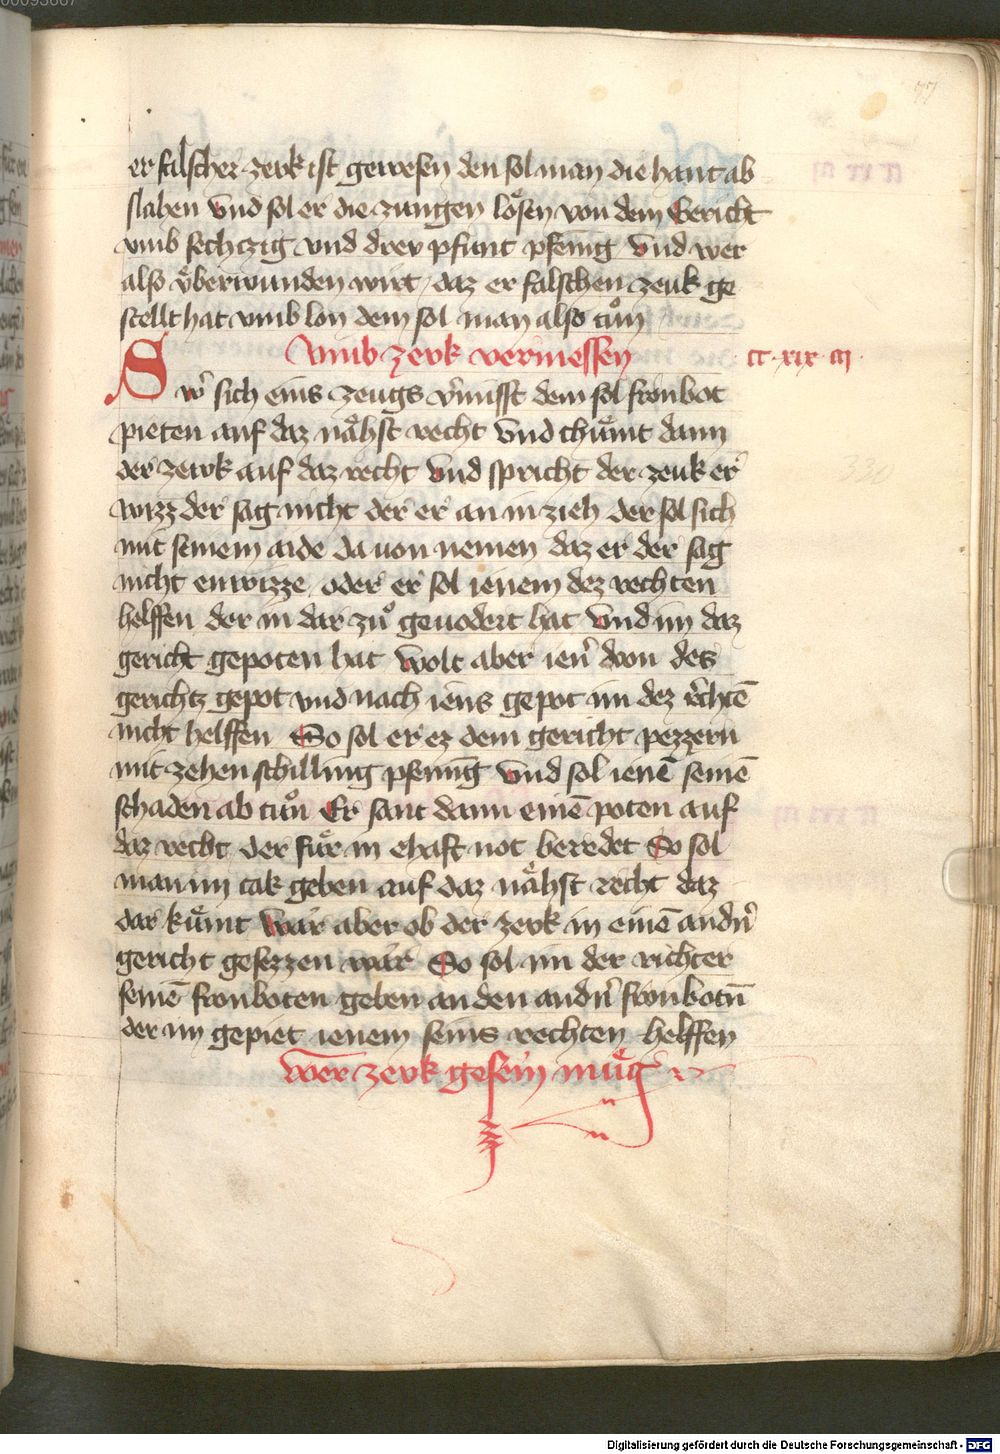 77
er falscher zewk ist gewesen den sol man die hant ab
slahen vnd sol er die zungen lösen von dem Gericht
vmb sechczig vnd drey pfunt pfenīg vnd wer
also v̈berwunden wirt daz er falschen zeuk ge
stellt hat vmb lon dem sol man also tůn
vmb zewk vermessen
cc · xix · cap
Sw̄ sich eins zeugs v̄misst dem sol fronbot
pieten auf daz nähst recht vnd chümt dann
der zewk auf daz recht vnd spricht der zeuk er
wizz der sag nicht der er an in zieh der sol sich
mit seinem aide da von nemen daz er der sag
nicht enwizze oder er sol ienem dez rechten
helffen der in dar zů geuodert hat vnd im daz
gericht gepoten hat wolt aber ien̄ von des
gerichtz gepot vnd nach iens gepot im dez rechtē
nicht helffen So sol er ez dem gericht pezzern
mit zehen schilling pfenīg vnd sol ienē seinē
schaden ab tůn Er sant dann einē poten auf
daz recht der für in ehaft not beredet So sol
man im tak geben auf daz nähst recht daz
dar kümt wär aber ob der zewk in einē andn̄
gericht gesezzen wär So sol im der richter
seinē fronboten geben an den andn̄ fronbotn̄
der im gepiet ienem seins rechten helffen
wer zewk gesein müg
Digitalisierung gefördert durch die Deutsche Forschungsgemeinschaft - DFG